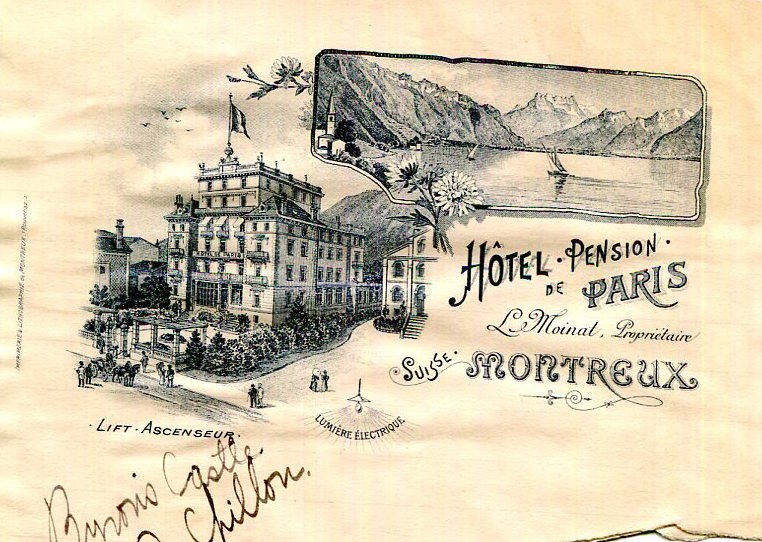 HÔTEL · PENSION ·
DE PARIS
L. Moinat, Propriétaire
SUISSE.
MONTREUX
HÔTEL PARIS
LUMIÈRE ÉLECTRIQUE
· LIFT · ASCENSEUR ·
IMPRIMERIE & LITHOGRAPHIE DE MONTREUX
Byron's Castle.
Chillon.